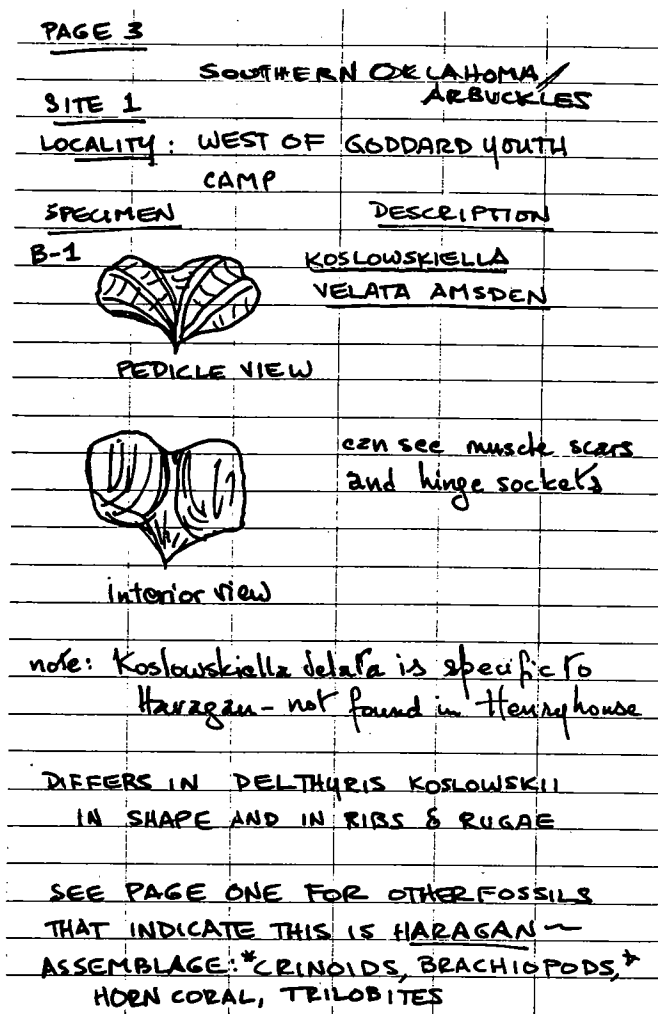 PAGE 3
SOUTHERN OKLAHOMA/
ARBUCKLES
SITE 1
LOCALITY: WEST OF GODDARD YOUTH
CAMP
SPECIMEN DESCRIPTION
B-1 KOSLOWSKIELLA
VELATA AMSDEN
PEDICLE VIEW
can see muscle scars
and hinge sockets
interior view
note: Koslowskiella velata is specific to
Haragan - not found in Henryhouse
DIFFERS IN DELTHYRIS KOSLOWSKII
IN SHAPE AND IN RIBS & RUGAE
SEE PAGE ONE FOR OTHER FOSSILS
THAT INDICATE THIS IS HARAGAN ~
ASSEMBLAGE: *CRINOIDS, BRACHIOPODS,*
HORN CORAL, TRILOBITES